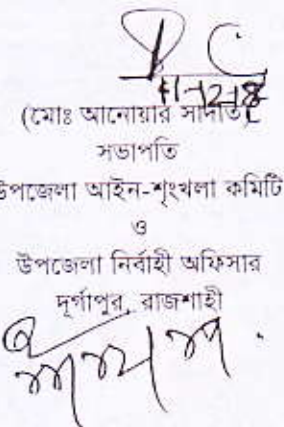 11-12-18
(মোঃ আনোয়ার সাদাত)
সভাপতি
উপজেলা আইন-শৃংখলা কমিটি
ও
উপজেলা নির্বাহী অফিসার
দূর্গাপুর, রাজশাহী